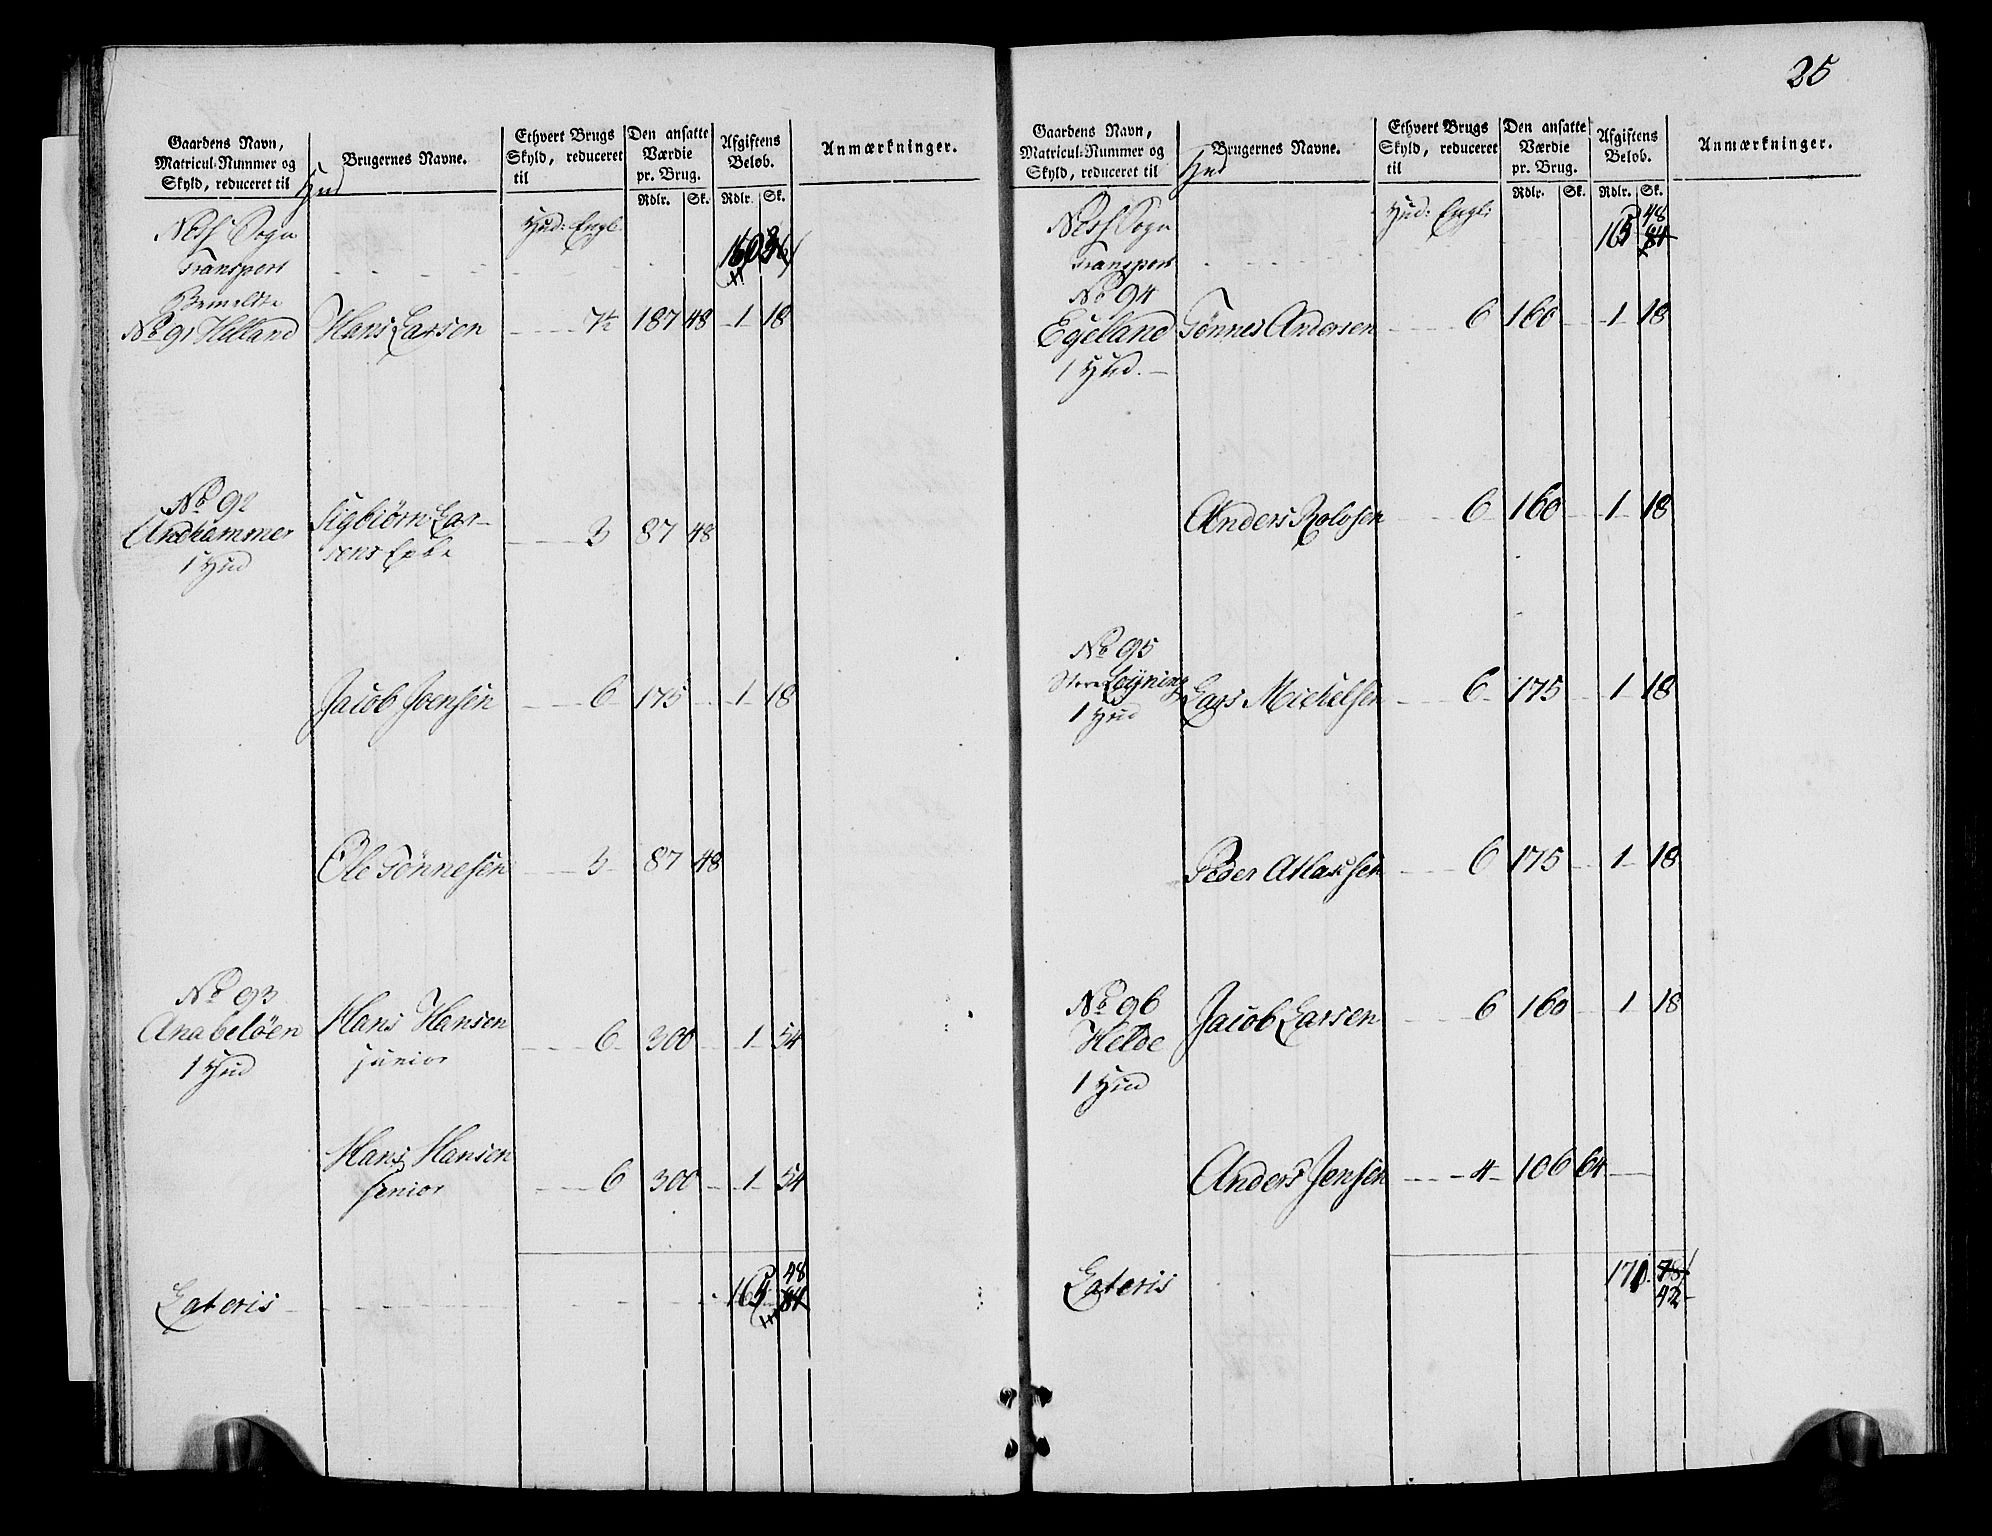 Gaardens Navn,
Matricul-Nummer og
Skyld, reduceret til
Hud
Brugernes Navne.
Ethvert Brugs
Skyld, reduceret
til
Den ansatte
Værdie
pr. Brug.
Rdlr. Sk.
Afgiftens
Beløb.
Rdlr. Sk.
Anmærkninger.
Hud: Engl.
Ness Sogn
Transport
Bemeldte
No 91 Helland Hans Larsen 7½ 187 48 1 18
No 92
Andhammer Sigbiørn Lar-
1 Hud sens Enke 3 87 48
Jacob Joensen 6 175 1 18
Ole Tønnesen 3 87 48
No 93
Anabeløen Hans Hansen
1 Hud junior 6 300 1 54
Hans Hansen
senior 6 300 1 54
Lateris 165 48
84
25
Gaardens Navn,
Matricul-Nummer og
Skyld, reduceret til
Hud
Brugernes Navne.
Ethvert Brugs
Skyld, reduceret
til
Den ansatte
Værdie
pr. Brug.
Rdlr. Sk.
Afgiftens
Beløb.
Rdlr. Sk.
Anmærkninger.
Hud: Engl:
Ness Sogn 48
Transport 165 84
No 94
Egeland Tønnes Andersen 6 160 1 18
1 Hud.
Anders Rolvsen 6 160 1 18
No 95
Store Løyning Lars Michelsen 6 175 1 18
1 Hud
Peder Atlaksen 6 175 1 18
No 96
Helde Jacob Larsen 6 160 1 18
1 Hud
Anders Jensen 4 106 64
Lateris 171 78
42